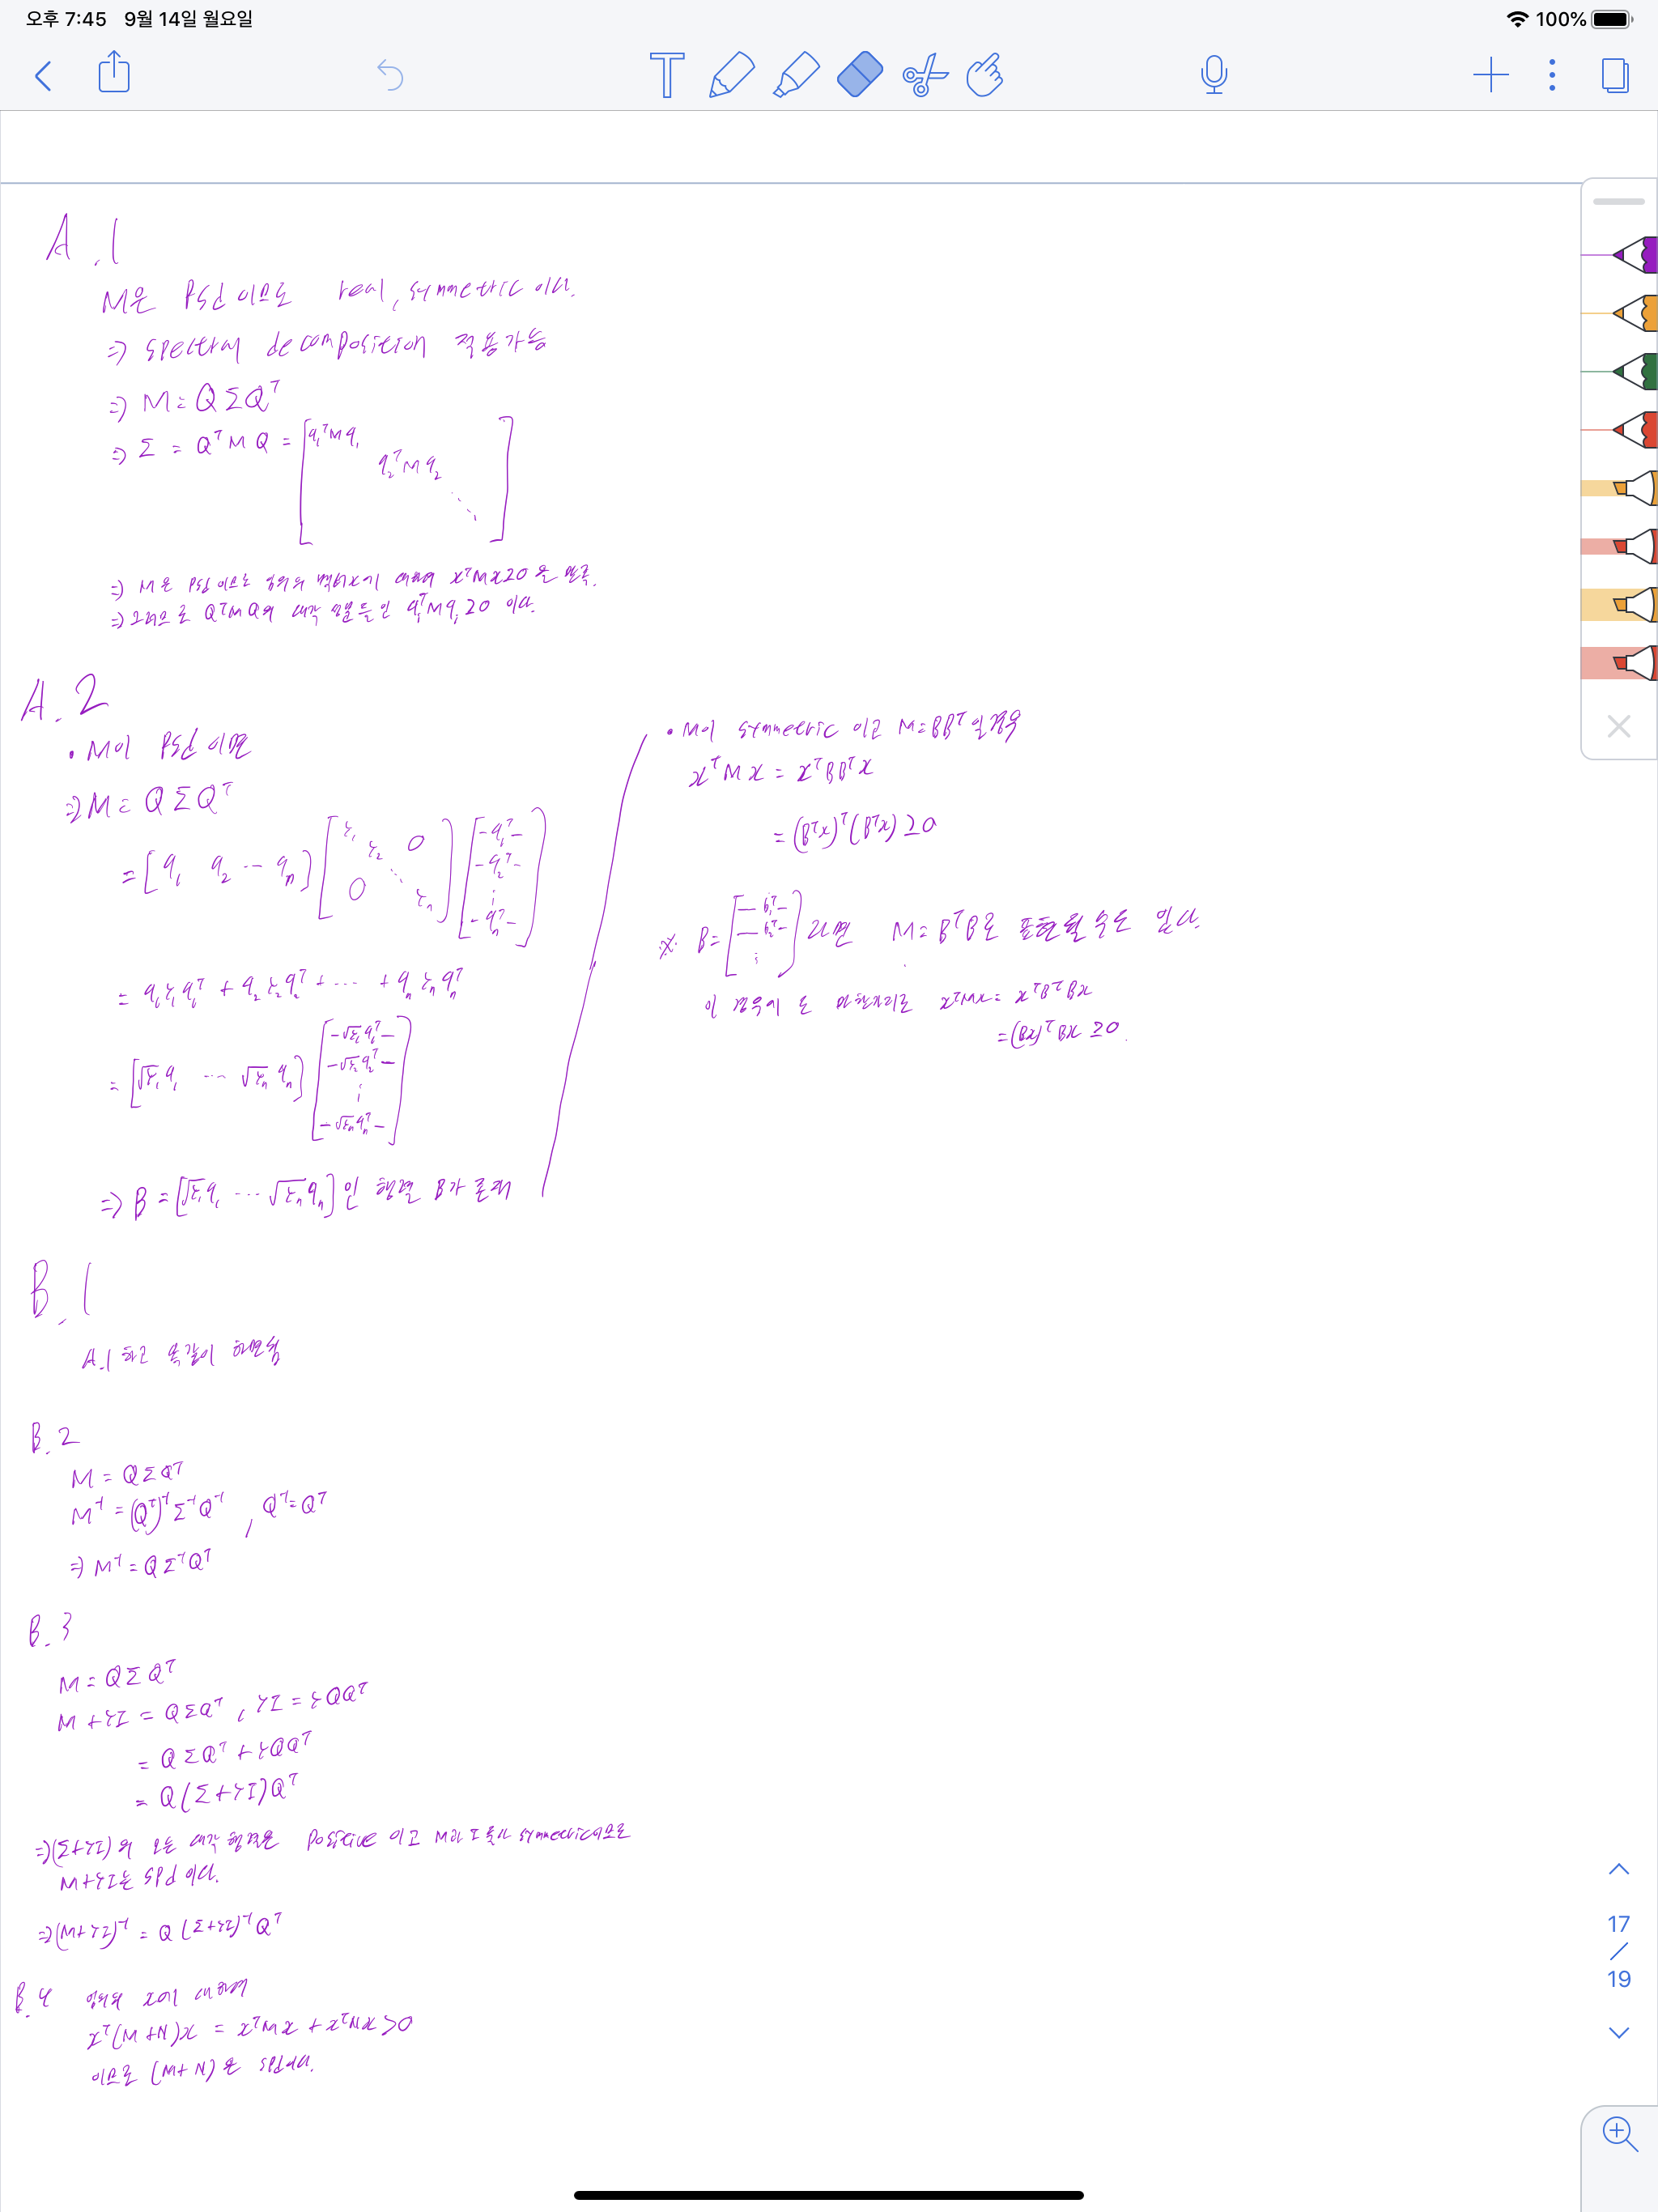 오후 7:45 9월 14일 월요일
100%
A.1
M은 Psd 이므로 real, symmetric 이다.
⇒ spectral decomposition 적용가능
⇒ M = QΣQᵀ
⇒ Σ = QᵀMQ = [q₁ᵀMq₁
q₂ᵀMq₂
⋱ ]
⇒ M은 psd 이므로 임의의 벡터 x에 대하여 xᵀMx≥0 을 만족.
⇒ 그러므로 QᵀMQ의 대각 성분들인 qᵢᵀMqᵢ≥0 이다.
A.2
• M이 Psd 이면
⇒ M = QΣQᵀ
= [q₁ q₂ ⋯ qₙ] [λ₁ λ₂ ⋱ λₙ 0 0] [-q₁ᵀ- -q₂ᵀ- ⋮ -qₙᵀ-]
= q₁λ₁q₁ᵀ + q₂λ₂q₂ᵀ + ⋯ + qₙλₙqₙᵀ
= [√λ₁q₁ ⋯ √λₙqₙ] [-√λ₁q₁ᵀ- -√λ₂q₂ᵀ- ⋮ -√λₙqₙᵀ-]
⇒ B = [√λ₁q₁ ⋯ √λₙqₙ] 인 행렬 B가 존재
• M이 symmetric 이고 M=BBᵀ일 경우
xᵀMx = xᵀBBᵀx
= (Bᵀx)ᵀ(Bᵀx) ≥0
※ B= [-b₁ᵀ- -b₂ᵀ- ⋮] 라면 M=BᵀB로 표현될 수도 있다.
이 경우에도 마찬가지로 xᵀMx = xᵀBᵀBx
=(Bx)ᵀBx ≥0.
B.1
A.1 하고 똑같이 하면됨
B.2
M = QΣQᵀ
M⁻¹ = (Qᵀ)⁻¹Σ⁻¹Q⁻¹, Q⁻¹=Qᵀ
⇒ M⁻¹ = QΣ⁻¹Qᵀ
B.3
M = QΣQᵀ
M+λI = QΣQᵀ, λI = λQQᵀ
= QΣQᵀ+λQQᵀ
= Q(Σ+λI)Qᵀ
⇒(Σ+λI)의 모든 대각 행렬은 positive 이고 M과 I 둘다 symmetric이므로
M+λI는 spd 이다.
⇒(M+λI)⁻¹ = Q(Σ+λI)⁻¹Qᵀ
B.4 임의의 x에 대하여
xᵀ(M+N)x = xᵀMx + xᵀNx >0
이므로 (M+N)은 spd이다.
17
19